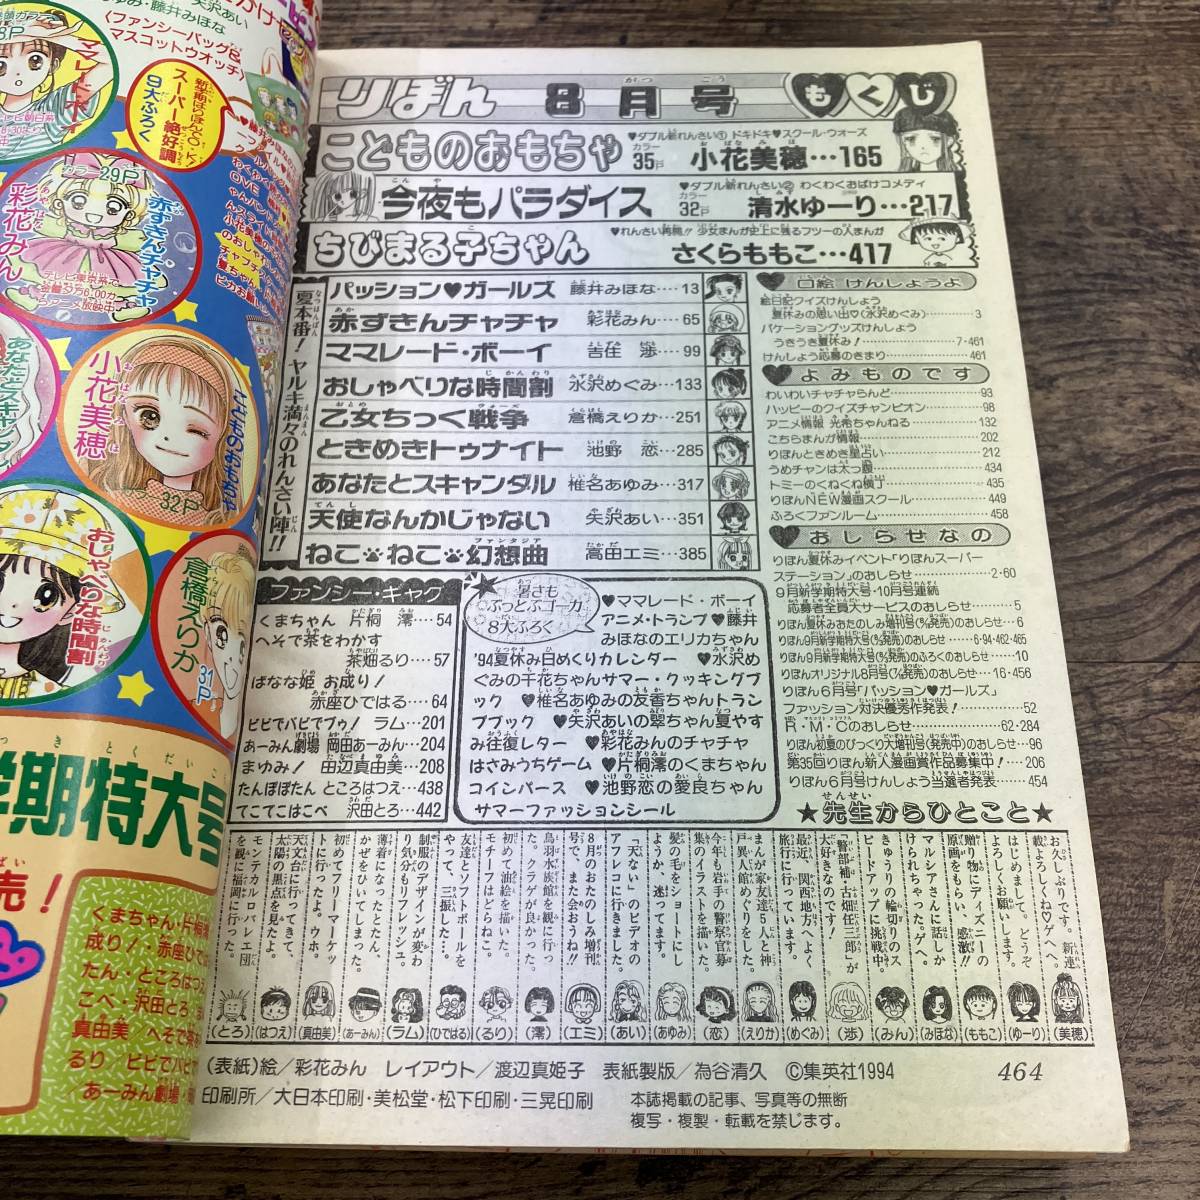 りぼん 8月号 もくじ
こどものおもちゃ
♥ダブル新れんさい① ドキドキ♥スクール・ウォーズ
カラー35P 小花美穂…165
今夜もパラダイス
♥ダブル新れんさい② わくわくおばけコメディ
カラー32P 清水ゆーり…217
ちびまる子ちゃん
♥れんさい再開!! 少女まんが史上に残るフツーの人まんが
さくらももこ…417
夏本番！ヤルキ満々のれんさい陣!!
パッション♥ガールズ 藤井みほな…13
赤ずきんチャチャ 彩花みん…65
ママレード・ボーイ 吉住 渉…99
おしゃべりな時間割 水沢めぐみ…133
乙女ちっく戦争 倉橋えりか…251
ときめきトゥナイト 池野 恋…285
あなたとスキャンダル 椎名あゆみ…317
天使なんかじゃない 矢沢あい…351
ねこ・ねこ・幻想曲 高田エミ…385
ファンシー・ギャグ
くまちゃん 片桐 澪…54
へそで茶をわかす
茶畑るり…57
ばなな姫 お成り！
赤座ひではる…64
ビビでバビでブゥ！ ラム…201
あーみん劇場 岡田あーみん…204
まゆみ！ 田辺真由美…208
たんぽぽたん ところはつえ…438
てこてこはこべ 沢田とろ…442
暑さもぶっとぶゴーカ8大ふろく
♥ママレード・ボーイ
アニメ・トランプ♥藤井
みほなのエリカちゃん
'94夏休み日めくりカレンダー ♥水沢め
ぐみの千花ちゃんサマー・クッキングブ
ック ♥椎名あゆみの友香ちゃんトラン
プブック ♥矢沢あいの翠ちゃん夏やす
み往復レター ♥彩花みんのチャチャ
はさみうちゲーム ♥片桐澪のくまちゃん
コインパース ♥池野恋の愛良ちゃん
サマーファッションシール
口絵 けんしょうよ
絵日記クイズけんしょう
夏休みの思い出♡(水沢めぐみ)…3
バケーショングッズけんしょう
うきうき夏休み！…7・461
けんしょう応募のきまり…461
よみものです
わいわいチャチャらんど…93
ハッピーのクイズチャンピオン…98
アニメ情報 光希ちゃんねる…132
こちらまんが情報…202
りぼんときめき星占い…212
うめチャンは太っ腹…434
トミーのくねくね横丁…435
りぼんNEW漫画スクール…449
ふろくファンルーム…458
おしらせなの
りぼん夏休みイベント「りぼんスーパー
ステーション」のおしらせ…2・60
9月新学期特大号・10月号連続
応募者全員大サービスのおしらせ…5
りぼん6月号「パッション♥ガールズ」
ファッション対決優秀作発表！…52
R・M・Cのおしらせ…62・284
りぼん初夏のびっくり大増刊号(発売中)のおしらせ…96
第35回りぼん新人漫画賞作品募集中！…206
りぼん6月号けんしょう当選者発表…454
★先生からひとこと★
お久しぶりです。新連載、よろしくね♡ゲへ。(美穂)
はじめまして。どうぞよろしくお願いします。(ゆーり)
贈り物にディズニーの原画をもらい、感激!!(ももこ)
マルシアさんに話しかけられちゃった。ゲへ。(みほな)
きゅうりの輪切りのスピードアップに挑戦中。(みん)
「警部補・古畑任三郎」が大好きなのです！(渉)
最近、関西地方へよく旅行に行っています。(めぐみ)
まんが家友達5人と神戸異人館めぐりをした。(えりか)
今年も岩手の警察官募集のイラストを描いた。(恋)
髪の毛をショートにしようか、迷ってます。(あゆみ)
「天ない」のビデオのアフレコに行きました。(あい)
8月のおたのしみ増刊号で、また会おうね!!(エミ)
鳥羽水族館を観に行った。クラゲが良かった。(澪)
初めて油絵を描いた。モチーフはどらねこ。(るり)
友達とソフトボールをやって、三振した…。(ひではる)
制服のデザインが変わり気分もリフレッシュ。(ラム)
薄着になったとたん、かぜをひいてしまった。(あーみん)
初めてフリーマーケットに行ったよ。ウホ。(真由美)
天文台に行ってきて、太陽の黒点を見たよ。(はつえ)
モンテカルロ・バレエ団を観に福岡に行った。(とろ)
(表紙)絵／彩花みん レイアウト／渡辺真姫子 表紙製版／為谷清久 ©集英社1994
464
印刷所／大日本印刷・美松堂・松下印刷・三晃印刷
本誌掲載の記事、写真等の無断
複写・複製・転載を禁じます。
矢沢あい
藤井みほな
〈ファンシーバッグ&
マスコットウオッチ〉
ママレード・ボーイ
スーパー絶好調
9大ふろく
カラー29P
彩花みん
赤ずきんチャチャ
小花美穂
こどものおもちゃ
32P
おしゃべりな時間割
倉橋えりか
31P
学期特大号
売！